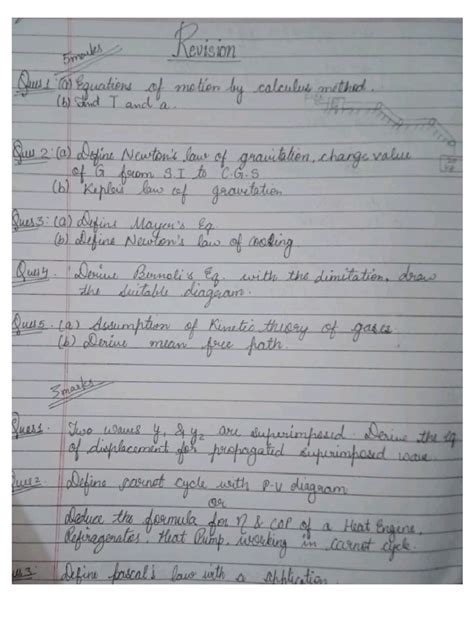 Revision
5marks
Ques 1 (a) Equations of motion by calculus method.
(b) find T and a.
Ques 2: (a) Define Newton's law of gravitation, change value
of G from S.I to C.G.S
(b) Keplers law of gravitation
Ques 3: (a) Define Mayer's Eq
(b) Define Newton's law of cooling
Ques 4. Derive Bernoli's Eq. with the limitation, draw
the suitable diagram.
Ques 5. (a) Assumption of Kinetic theory of gases
(b) Derive mean free path.
3marks
Ques 1. Two waves y1 & y2 are superimposed. Derive the Eq
of displacement for propagated superimposed wave.
Ques 2 Define carnot cycle with P-V diagram
or
Deduce the formula for η & COP of a Heat Engine,
Refiragenator, Heat Pump, working in carnot cycle.
Define pascal's law with a application